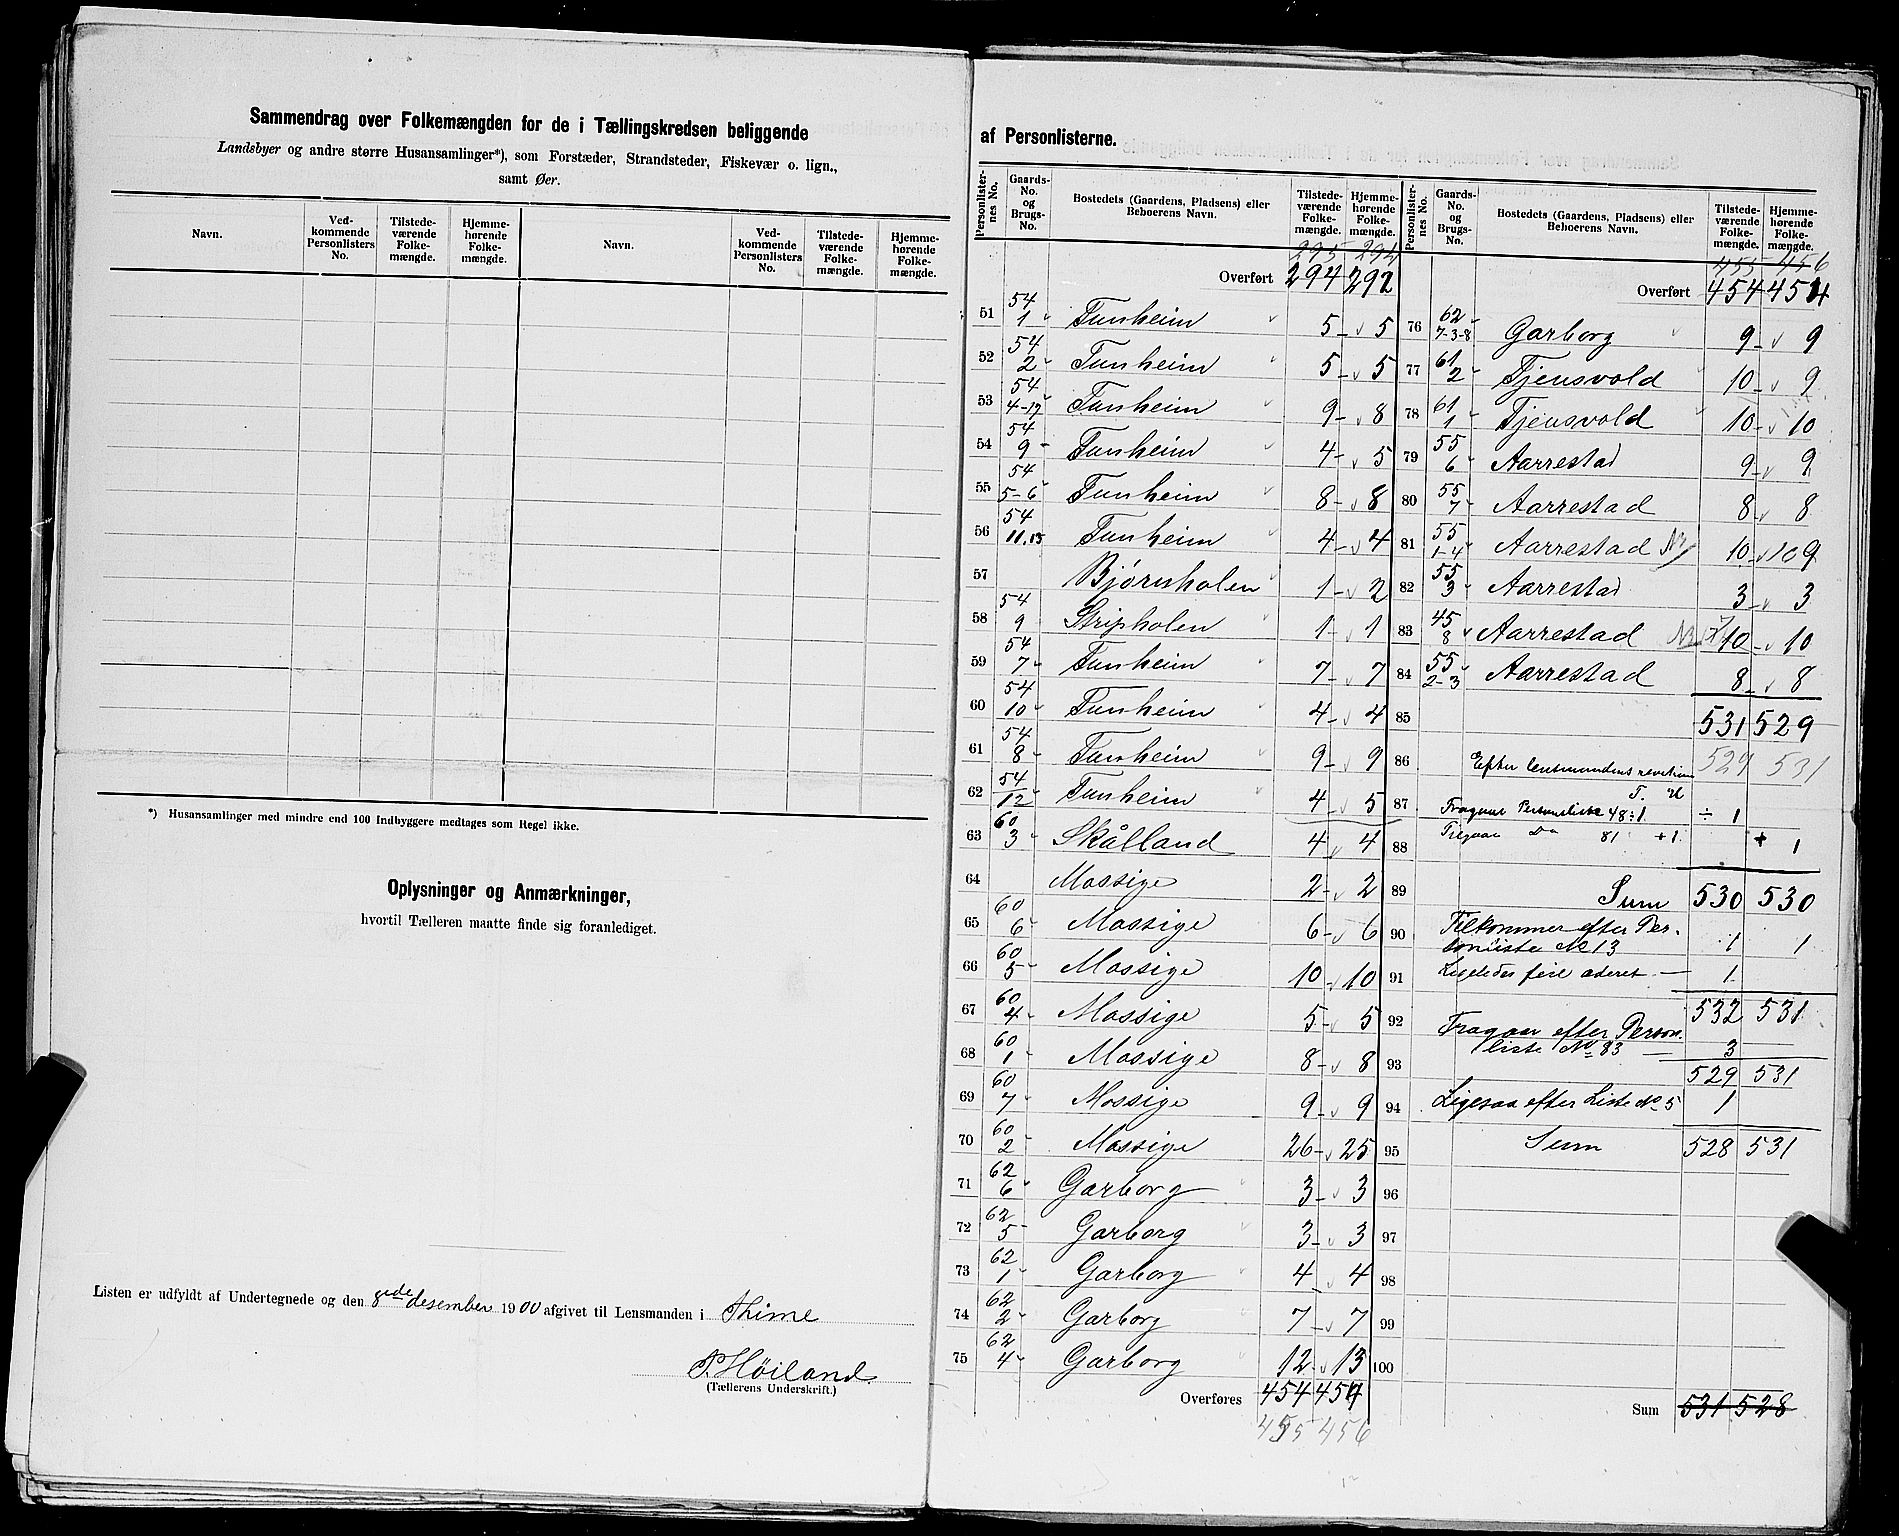 Sammendrag over Folkemængden for de i Tællingskredsen beliggende
Landsbyer og andre større Husansamlinger*), som Forstæder, Strandsteder, Fiskevær o. lign.,
samt Øer.
Navn. Ved-kommende Personlisters No. Tilstede-værende Folke-mængde. Hjemme-hørende Folke-mængde. Navn. Ved-kommende Personlisters No. Tilstede-værende Folke-mængde. Hjemme-hørende Folke-mængde.
*) Husansamlinger med mindre end 100 Indbyggere medtages som Regel ikke.
Oplysninger og Anmærkninger,
hvortil Tælleren maatte finde sig foranlediget.
Listen er udfyldt af Undertegnede og den 8de desember 1900 afgivet til Lensmanden i Thime
Høiland
(Tællerens Underskrift.)
af Personlisterne.
Personlister-nes No. Gaards-No. og Brugs-No. Bostedets (Gaardens, Pladsens) eller Beboerens Navn. Tilstede-værende Folke-mængde. Hjemme-hørende Folke-mængde.
295 292
Overført 294 292
51 54 1 Tunheim 5 5
52 54 2 Tunheim 5 5
53 54 4-17 Tunheim 9 8
54 54 9 Tunheim 4 5
55 54 5-6 Tunheim 8 8
56 54 11.15 Tunheim 4 4
57 Bjørnholen 1 2
58 54 9 Stripholen 1 1
59 54 7 Tunheim 7 7
60 54 10 Tunheim 4 4
61 54 8 Tunheim 9 9
62 54 12 Tunheim 4 5
63 60 3 Skålland 4 4
64 Mossige 2 2
65 60 6 Mossige 6 6
66 60 5 Mossige 10 10
67 60 4 Mossige 5 5
68 60 1 Mossige 8 8
69 60 7 Mossige 9 9
70 60 2 Mossige 26 25
71 62 6 Garborg 3 3
72 62 5 Garborg 3 3
73 62 1 Garborg 4 4
74 62 2 Garborg 7 7
75 62 4 Garborg 12 13
Overføres 454 454
455 456
Personlister-nes No. Gaards-No. og Brugs-No. Bostedets (Gaardens, Pladsens) eller Beboerens Navn. Tilstede-værende Folke-mængde. Hjemme-hørende Folke-mængde.
455 456
Overført 454 454
76 62 7-3-8 Garborg 9 9
77 61 2 Tjensvold 10 9
78 61 1 Tjensvold 10 10
79 55 6 Aarrestad 9 9
80 55 7 Aarrestad 8 8
81 55 1-4 Aarrestad 10 10 9
82 55 3 Aarrestad 3 3
83 45 8 Aarrestad 7 10 10
84 55 2-3 Aarrestad 8 8
85 531 529
86 Efter lensmandens revision 529 531
T. H
87 Fragaar Personliste 48 ÷ 1 ÷ 1
88 Tilgaar Do 81 + 1 + 1
89 Sum 530 530
90 Tilkommer efter Per-
sonliste No 13 1 1
91 Ligeledes feil aderet 1
92 532 531
Fragaar efter Person-
93 liste No 83 3
529 531
94 Ligesaa efter Liste No 5 1
95 Sum 528 531
96
97
98
99
100
Sum 531 528